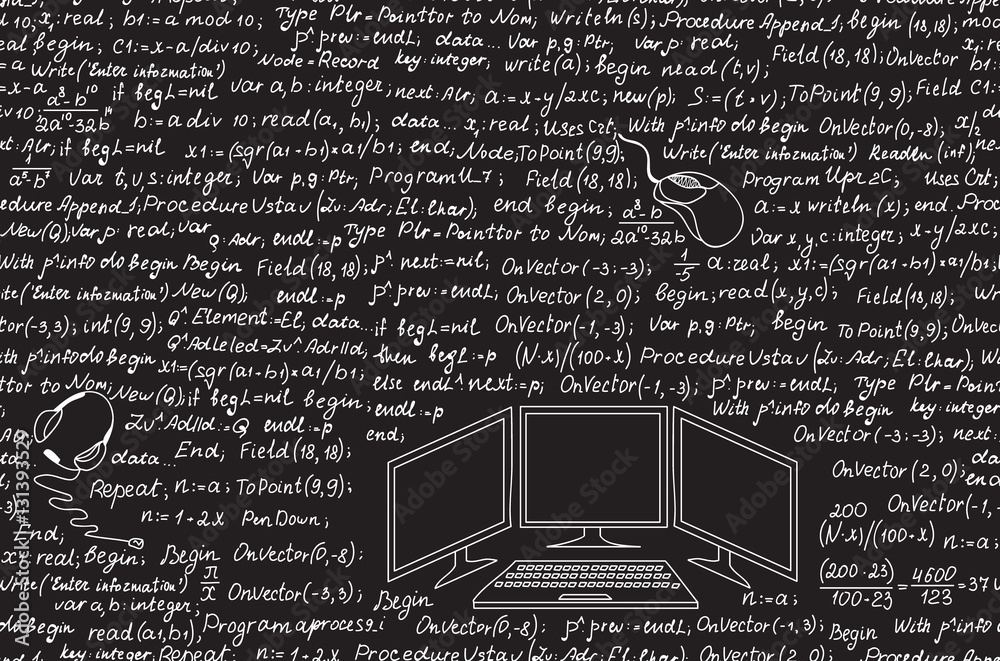 x; real; b1:=a mod 10; Type Plr=Pointtor to Nom; writeln(s); Procedure Append_1; begin (18,18);
begin; C1:=x-a/div 10; p^prev:=endL; data... Var p,g:Ptr; Var p:real; Field(18,18); OnVector
Write('Enter infozmation') Node=Record key:integer; write(a); begin read(t,v);
a^8-b^10 / 2a^10-32b^14 if begL=nil var a,b:integer; next:Alr; a:=x-y/2xc; new(p); S:=(t∘v); ToPoint(9,9); Field C1:=
b:=a div 10; read(a1,b1); data... x1:real; uses Crt; With p^info do begin OnVector(0,-8); x/2
if begL=nil x1:=(sgr(a1+b1)×a1/b1; end; Node; ToPoint(9,9); Write('Enter infozmation') Readln(inf);
1/a^5-b^5 Var t,v,s:integer; Var p,g:Ptr; ProgramU_7; Field(18,18); Program Upr2C; uses Crt;
Procedure Append_1; Procedure Ustav(Zv:Adr; El:Char); end begin; a^8-b / 2a^10-32b a:=x writeln(x); end.
New(Q); Var p:real; Var Q:Adr; endl:=p Type Plr=Pointtor to Nom; Var x,y,c:integer; x-y/2xc;
With p^info do Begin Begin Field(18,18); p^next:=nil; OnVector(-3;-3); 1/-5 a:real; x1:=(sgr(a1+b1)×a1/b1;
('Enter infozmation') New(Q); endl:=p p^prev:=endL; OnVector(2,0); begin; read(x,y,c); Field(18,18);
(-3,3); int(9,9); Q^Element:=El; data... if begL=nil OnVector(-1,-3); Var p,g:Ptr; begin ToPoint(9,9);
p^info do Begin Q^AdLeled=Zv^AdrIld; then begL:=p (N·x)/(100+x) Procedure Ustav(Zv:Adr; El:Char);
x1=(sgr(a1+b1)×a1/b1; else endL^next:=p; OnVector(-1,-3); p^prev:=endL; Type Plr=
to Nom; New(Q); if begL=nil begin; endl:=p With p^info do Begin key:integer
Zv^AdIld:=Q endl:=p end; OnVector(-3;-3); next:
data... End; Field(18,18); OnVector(2,0);
Repeat; n:=a; ToPoint(9,9); 200 OnVector(-1,
n:=1+2x PenDown; (N·x)/(100+x) n:=a;
x:real; Begin; Begin OnVector(0,-8);
Write('Enter infozmation') π/x OnVector(-3,3); Begin (200·23)/100·23=4600/123=37
var a,b:integer; n:=a;
Begin read(a1,b1), Program aproces9_i OnVector(0,-8); p^prev:=endL; OnVector(-1,-3); Begin With p^info
key:integer; Repeat; n:=1+2x Procedure Ustav(Zv:Adr; El:Char); n:=a;
Adobe Stock | #131393529